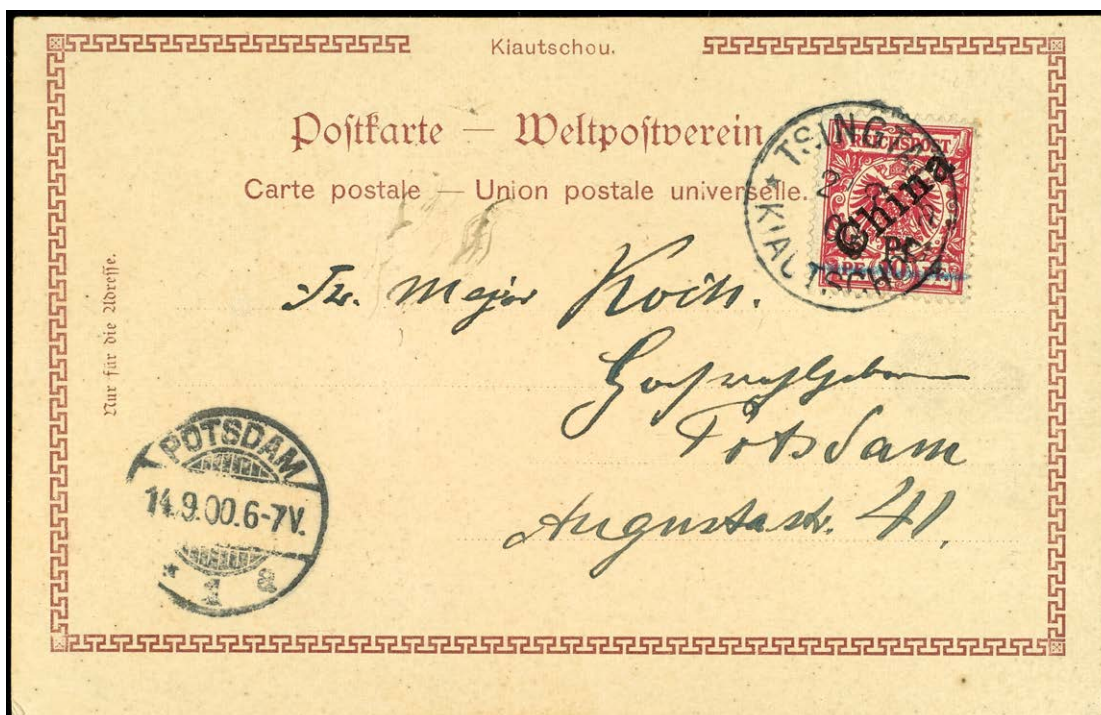 Kiautschou.
Poſtkarte — Weltpoſtverein
Carte postale — Union postale universelle.
Nur für die Adreſſe.
REICHSPOST
China
TSINGTAU
KIAUTSCHOU
Major Koch.
Hochwohlgeboren
Potsdam
Augustastr. 41.
POTSDAM
14.9.00.6-7V.
* 1